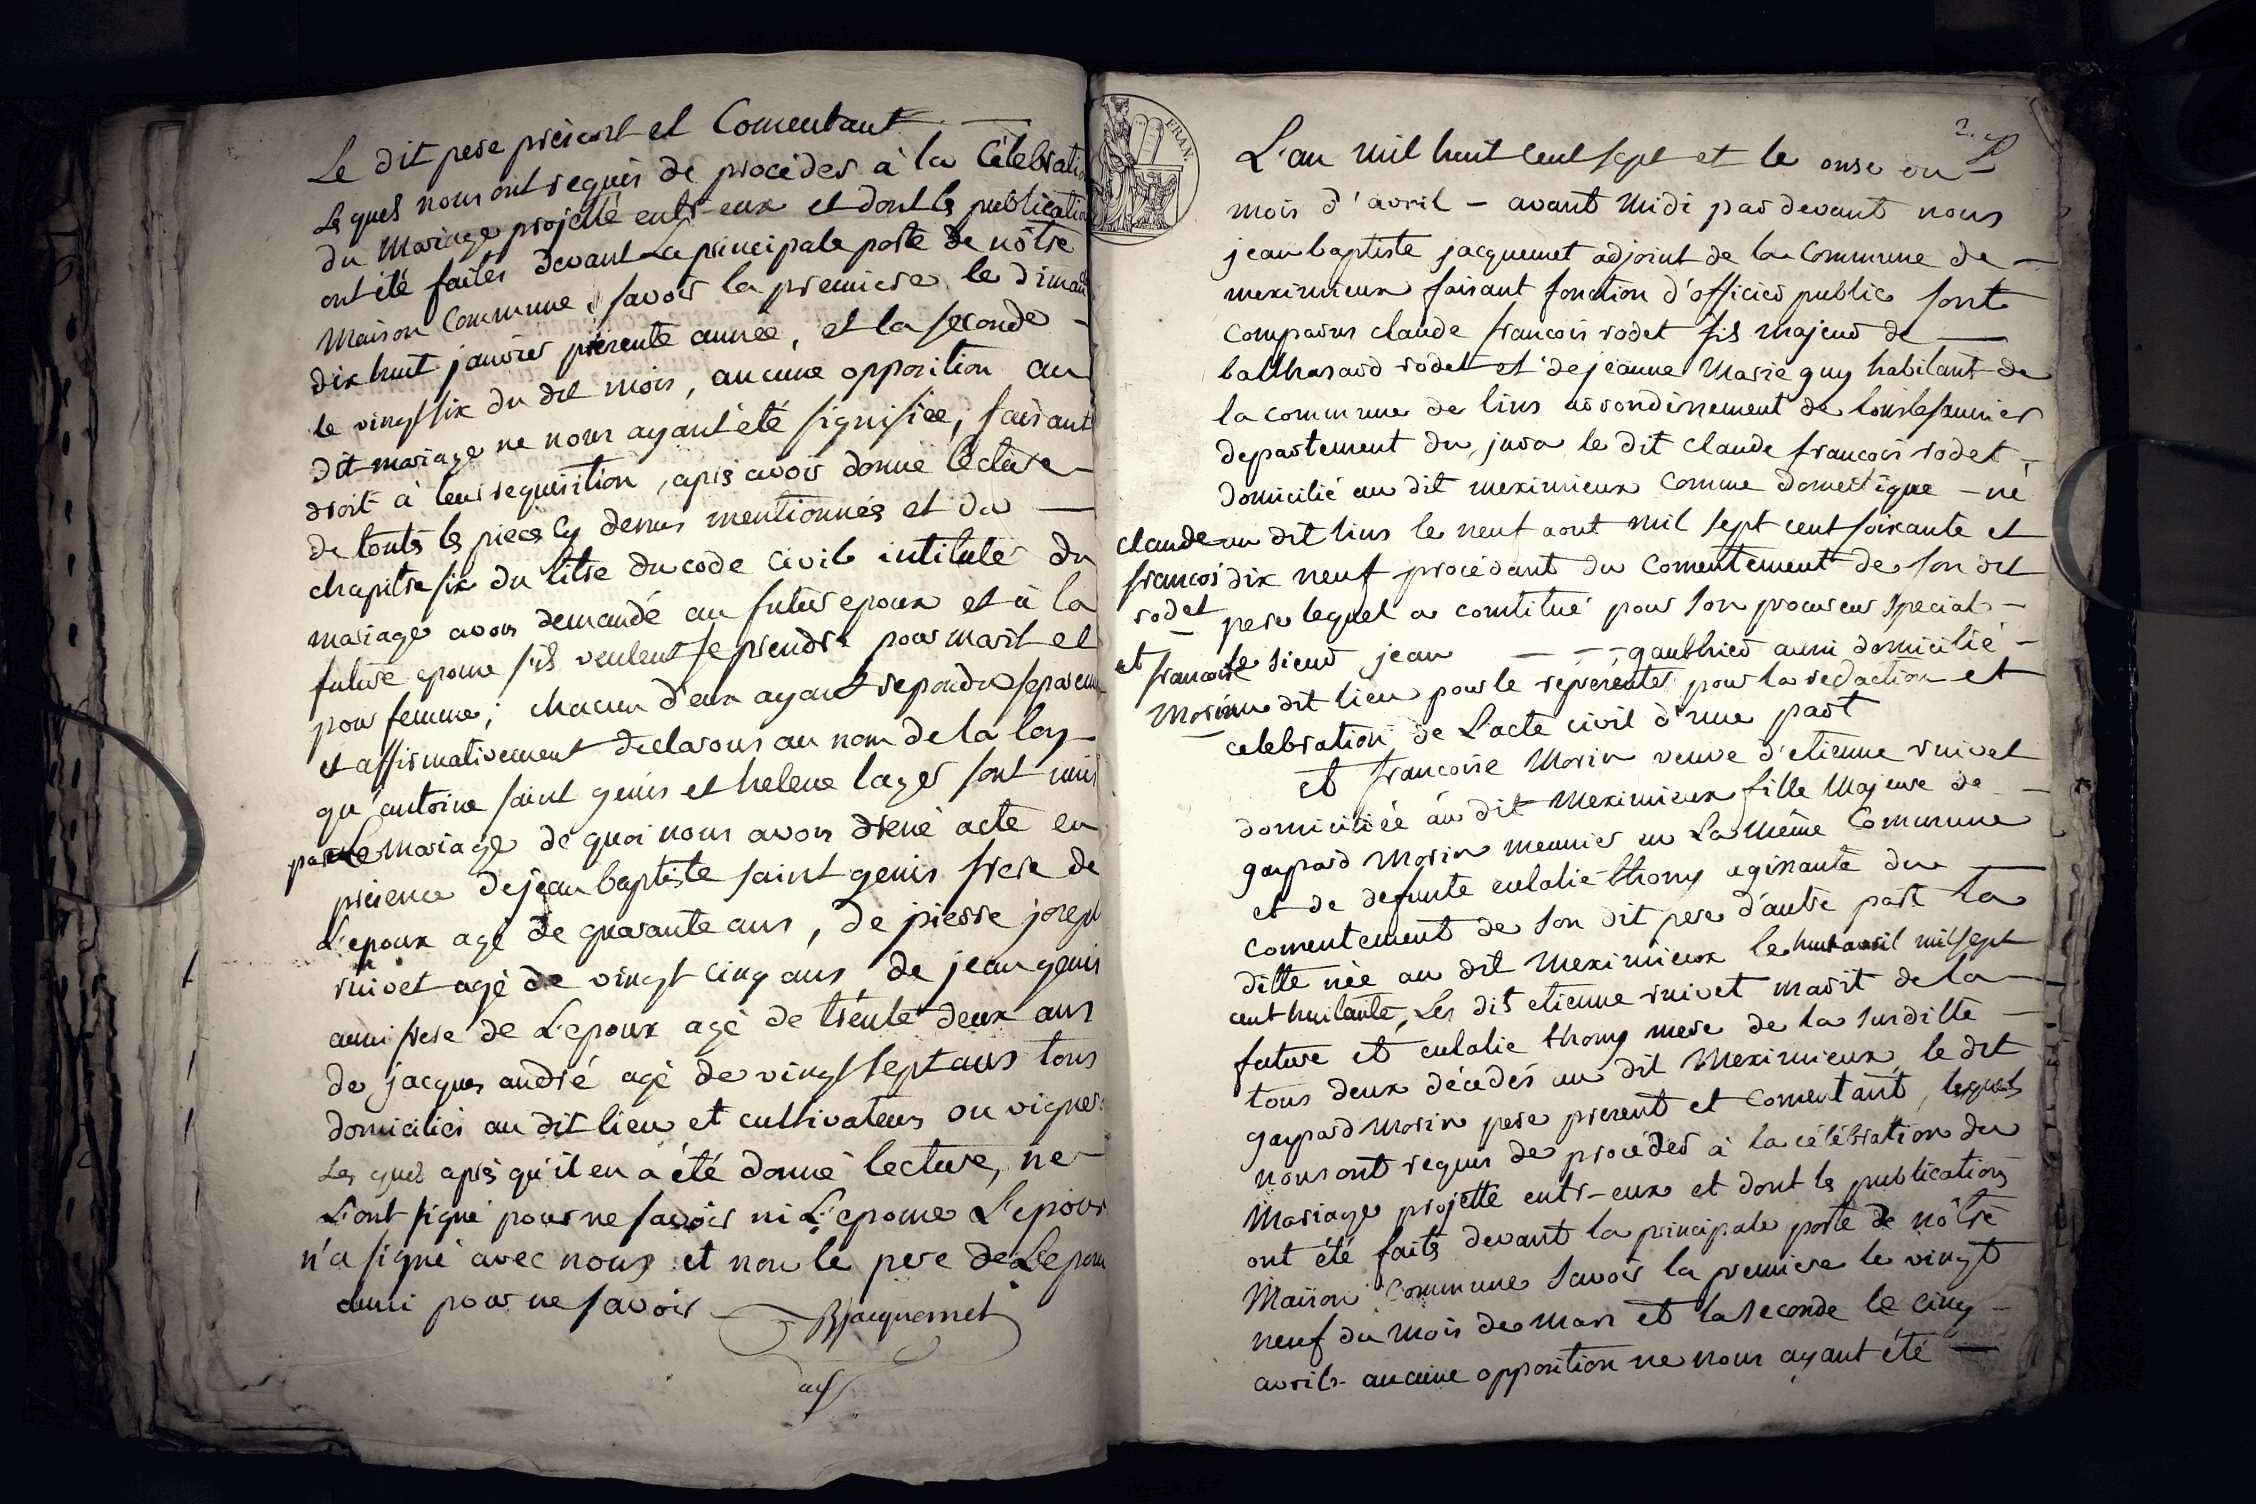 Le dit pere présent et Consentant
Lesquels nous ont requis de procéder à la Célebratio
du Mariage projetté entr-eux et dont les publication
ont été faites devant La principale porte de nôtre
Maison Commune, savoir la premiere le diman
dix huit janvier présente année, et la seconde
le vingt six du dit mois, aucune opposition au
dit mariage ne nous ayant été signifiée, faisant
droit à leur requisition, après avoir donné lécture
de touts les pieces cy dessus mentionnés et du
chapitre six du titre du code civil intitulé du
mariage avons demandé au futur epoux et à la
future epouse s'ils veulent se prendre pour marit et
pour femme; chacun d'eux ayant repondu separem
et affirmativement declarons au nom de la loy
qu'antoine saint genis et helene lager sont unis
par Le mariage de quoi nous avons dréné acte en
présence de jean baptiste saint genis frere de
L'epoux agé de quarante ans, de pierre joseph
ruivet agé de vingt cinq ans de jean genis
aussi frere de L'epoux agé de trénte deux ans
de jacques andré agé de vingt sept ans tous
domiciliés au dit lieu et cultivateurs ou vigner
Les quels après qu'il en a été donné lecture, ne
L'ont signé pour ne savoir ni L'epouse L'epoux
n'a signé avec nous et non le pere de L'epou
aussi pour ne savoir
BJacquemet
FRAN.
L'an mil huit cent sept et le onse du
mois d'avril – avant midi par devant nous
jean baptiste jacquemet adjoint de la Commune de –
meximieux faisant fonction d'officier public sont
comparus claude francois rodet fils majeur de
balthasard rodet et de jeanne Marie guy habitant de
la commune de lins arrondissement de lonslesaunier
departement du jura le dit claude francois rodet
domicilié au dit meximieux Comme domestique – né
au dit lins le neuf aout mil sept cent soixante et
dix neuf procédant du Consentement de son dit
pere lequel a constitué pour son procureur special –
le sieur jean – – – gauthier aussi domicilié –
au dit lieu pour le representer pour la redaction et
celebration de L'acte civil d'une part
claude
francois
rodet
et
francoise
Morin
et francoise Morin veuve d'etienne ruivet
domiciliée au dit Meximieux fille Majeure de
gaspard Morin meunier en La même Commune
et de defunte eulalie thomy agissante du
consentement de son dit pere d'autre part la
ditte née au dit Meximieux le huit avril mil sept
cent huitante, Les dit etienne ruivet marit de la
future et eulalie thomy mere de la surditte –
tous deux décedés au dit Meximieux, le dit
gaspard Morin pere present et Consentant, lesquels
nous ont requis de procéder à la célébration du
Mariage projetté entr-eux et dont les publications
ont été faits devant la principale porte de nôtre
Maison Commune savoir la premiere le vingt
neuf du mois de Mars et la seconde le cinq –
avril aucune opposition ne nous ayant été